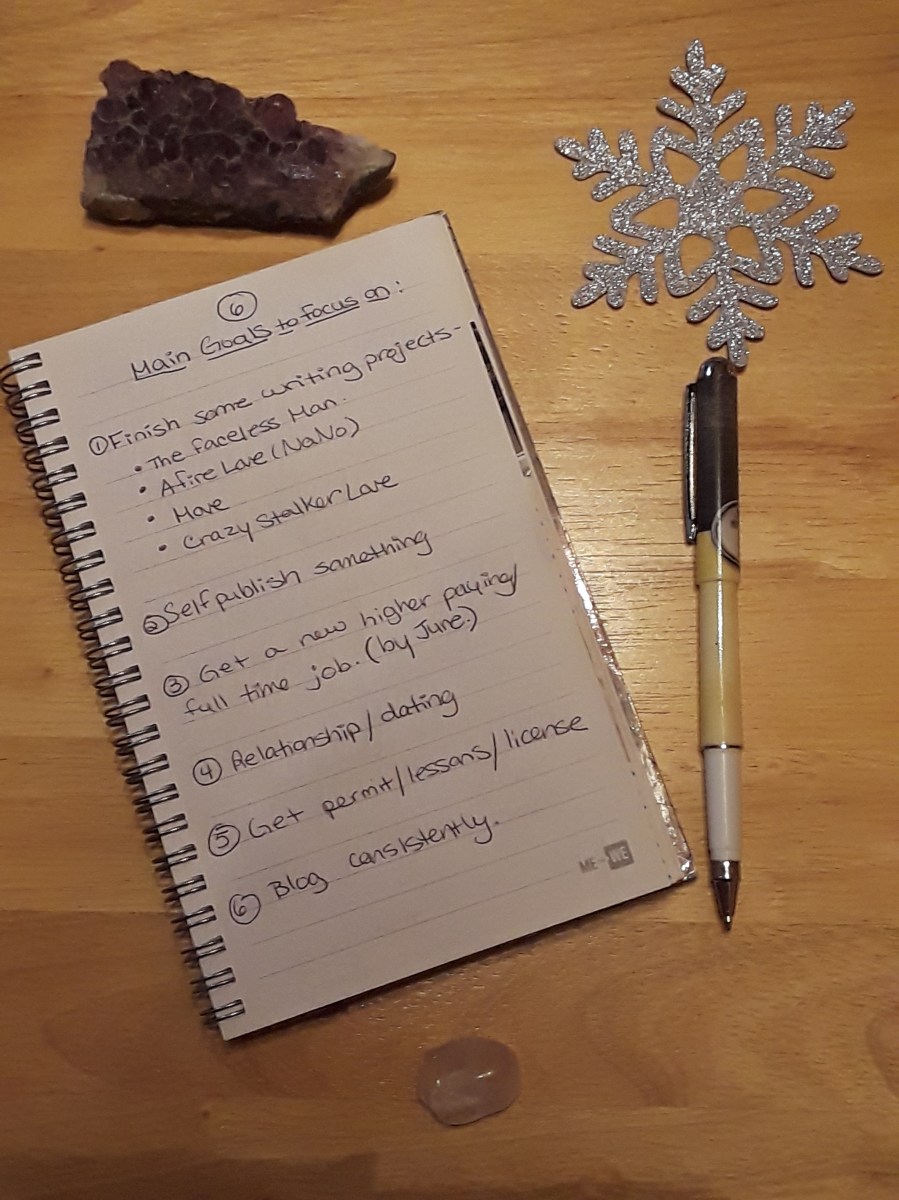 6
Main Goals to focus on:
① Finish some writing projects-
• The Faceless Man.
• Afire Love (NaNo)
• Move
• Crazy Stalker Love
② Self publish something
③ Get a new higher paying/
full time job. (by June.)
④ Relationship/dating
⑤ Get permit/lessons/license
⑥ Blog consistently.
ME WE